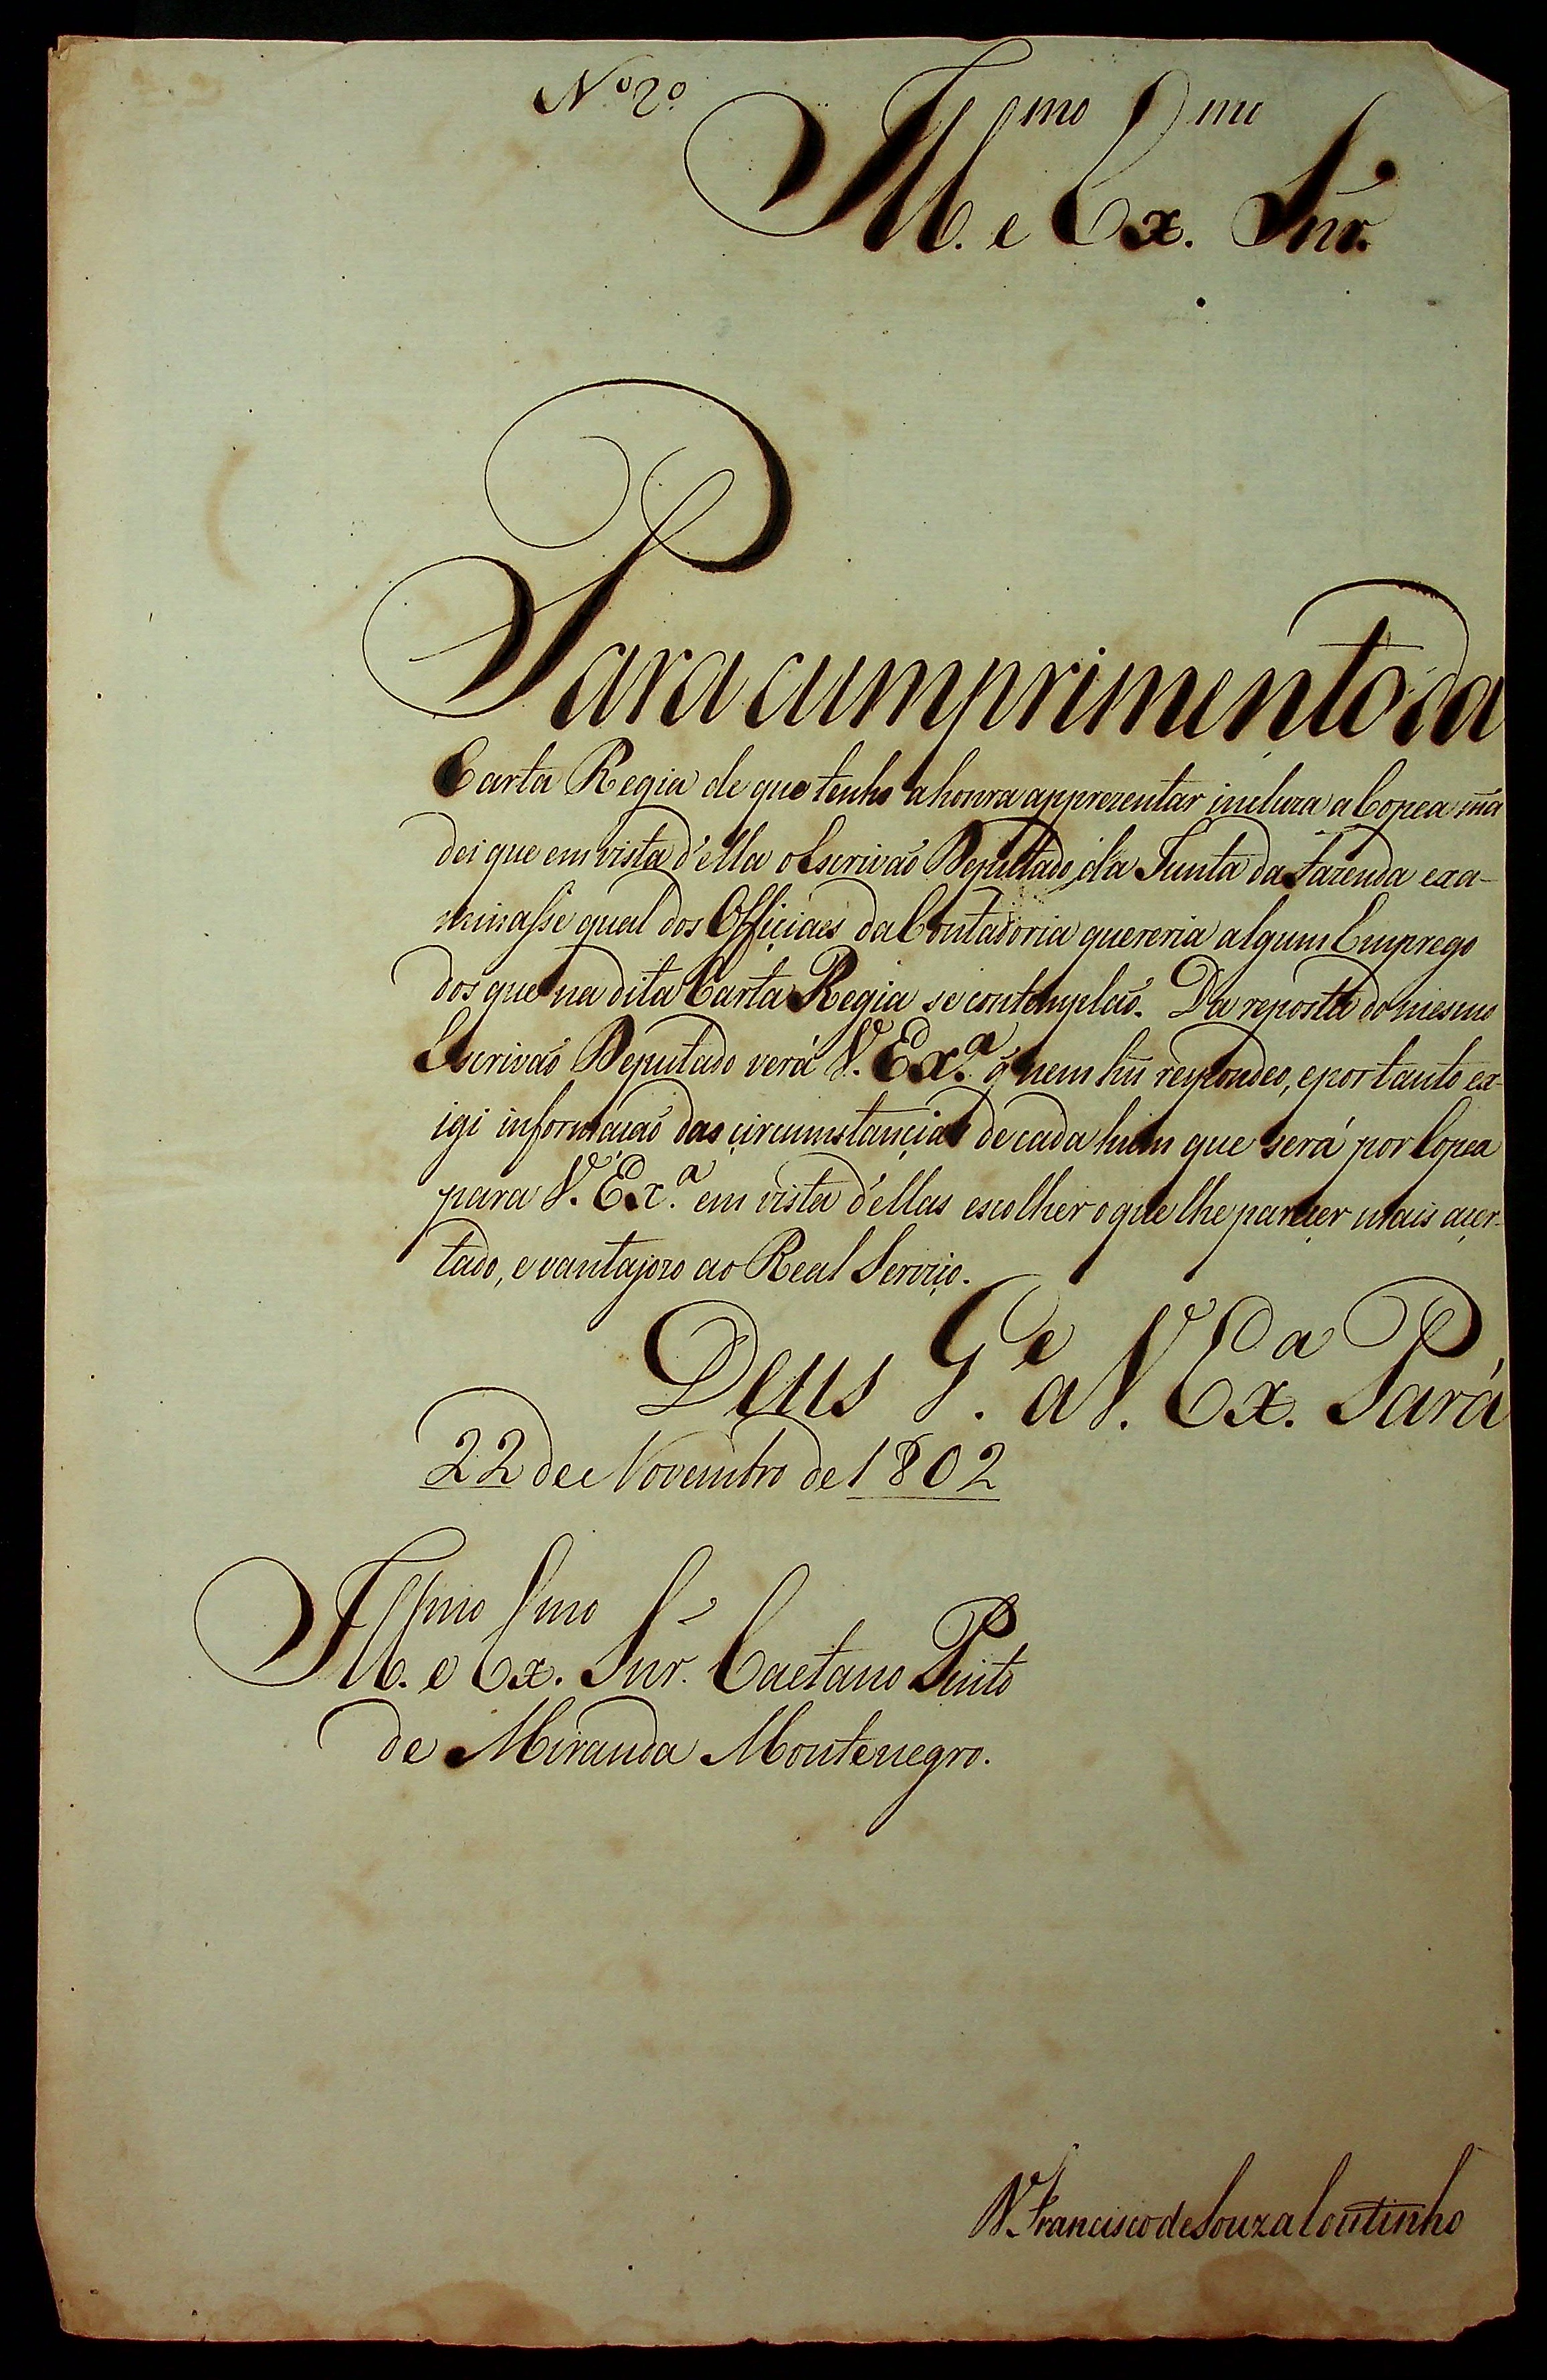 Nº 2º
Ill.mo e Ex.mo Snr.
Para cumprimento da
Carta Regia de que tenho a honra apprezentar incluza a Copea mã
dei que em vista d'ella o Escrivaõ Deputado d'a Junta da Fazenda exa-
minasse qual dos Officiaes da Contadoria quereria algum Emprego
dos que na dita Carta Regia se contemplaõ. Da reposta do mesmo
Escrivaõ Deputado verá V. Ex.ª q̃ nem hũ respondeo, e por tanto ex-
igi informaçaõ das circumstancias de cada hum que será por Copea
para V. Ex.ª em vista d'ellas escolher o que lhe parecer mais acer-
tado, e vantajozo ao Real Serviço.
Deus G.e a V. Ex.a Pará
22 de Novembro de 1802
Ill.mo e Ex.mo Snr. Caetano Pinto
de Miranda Montenegro.
Francisco de Souza Coutinho